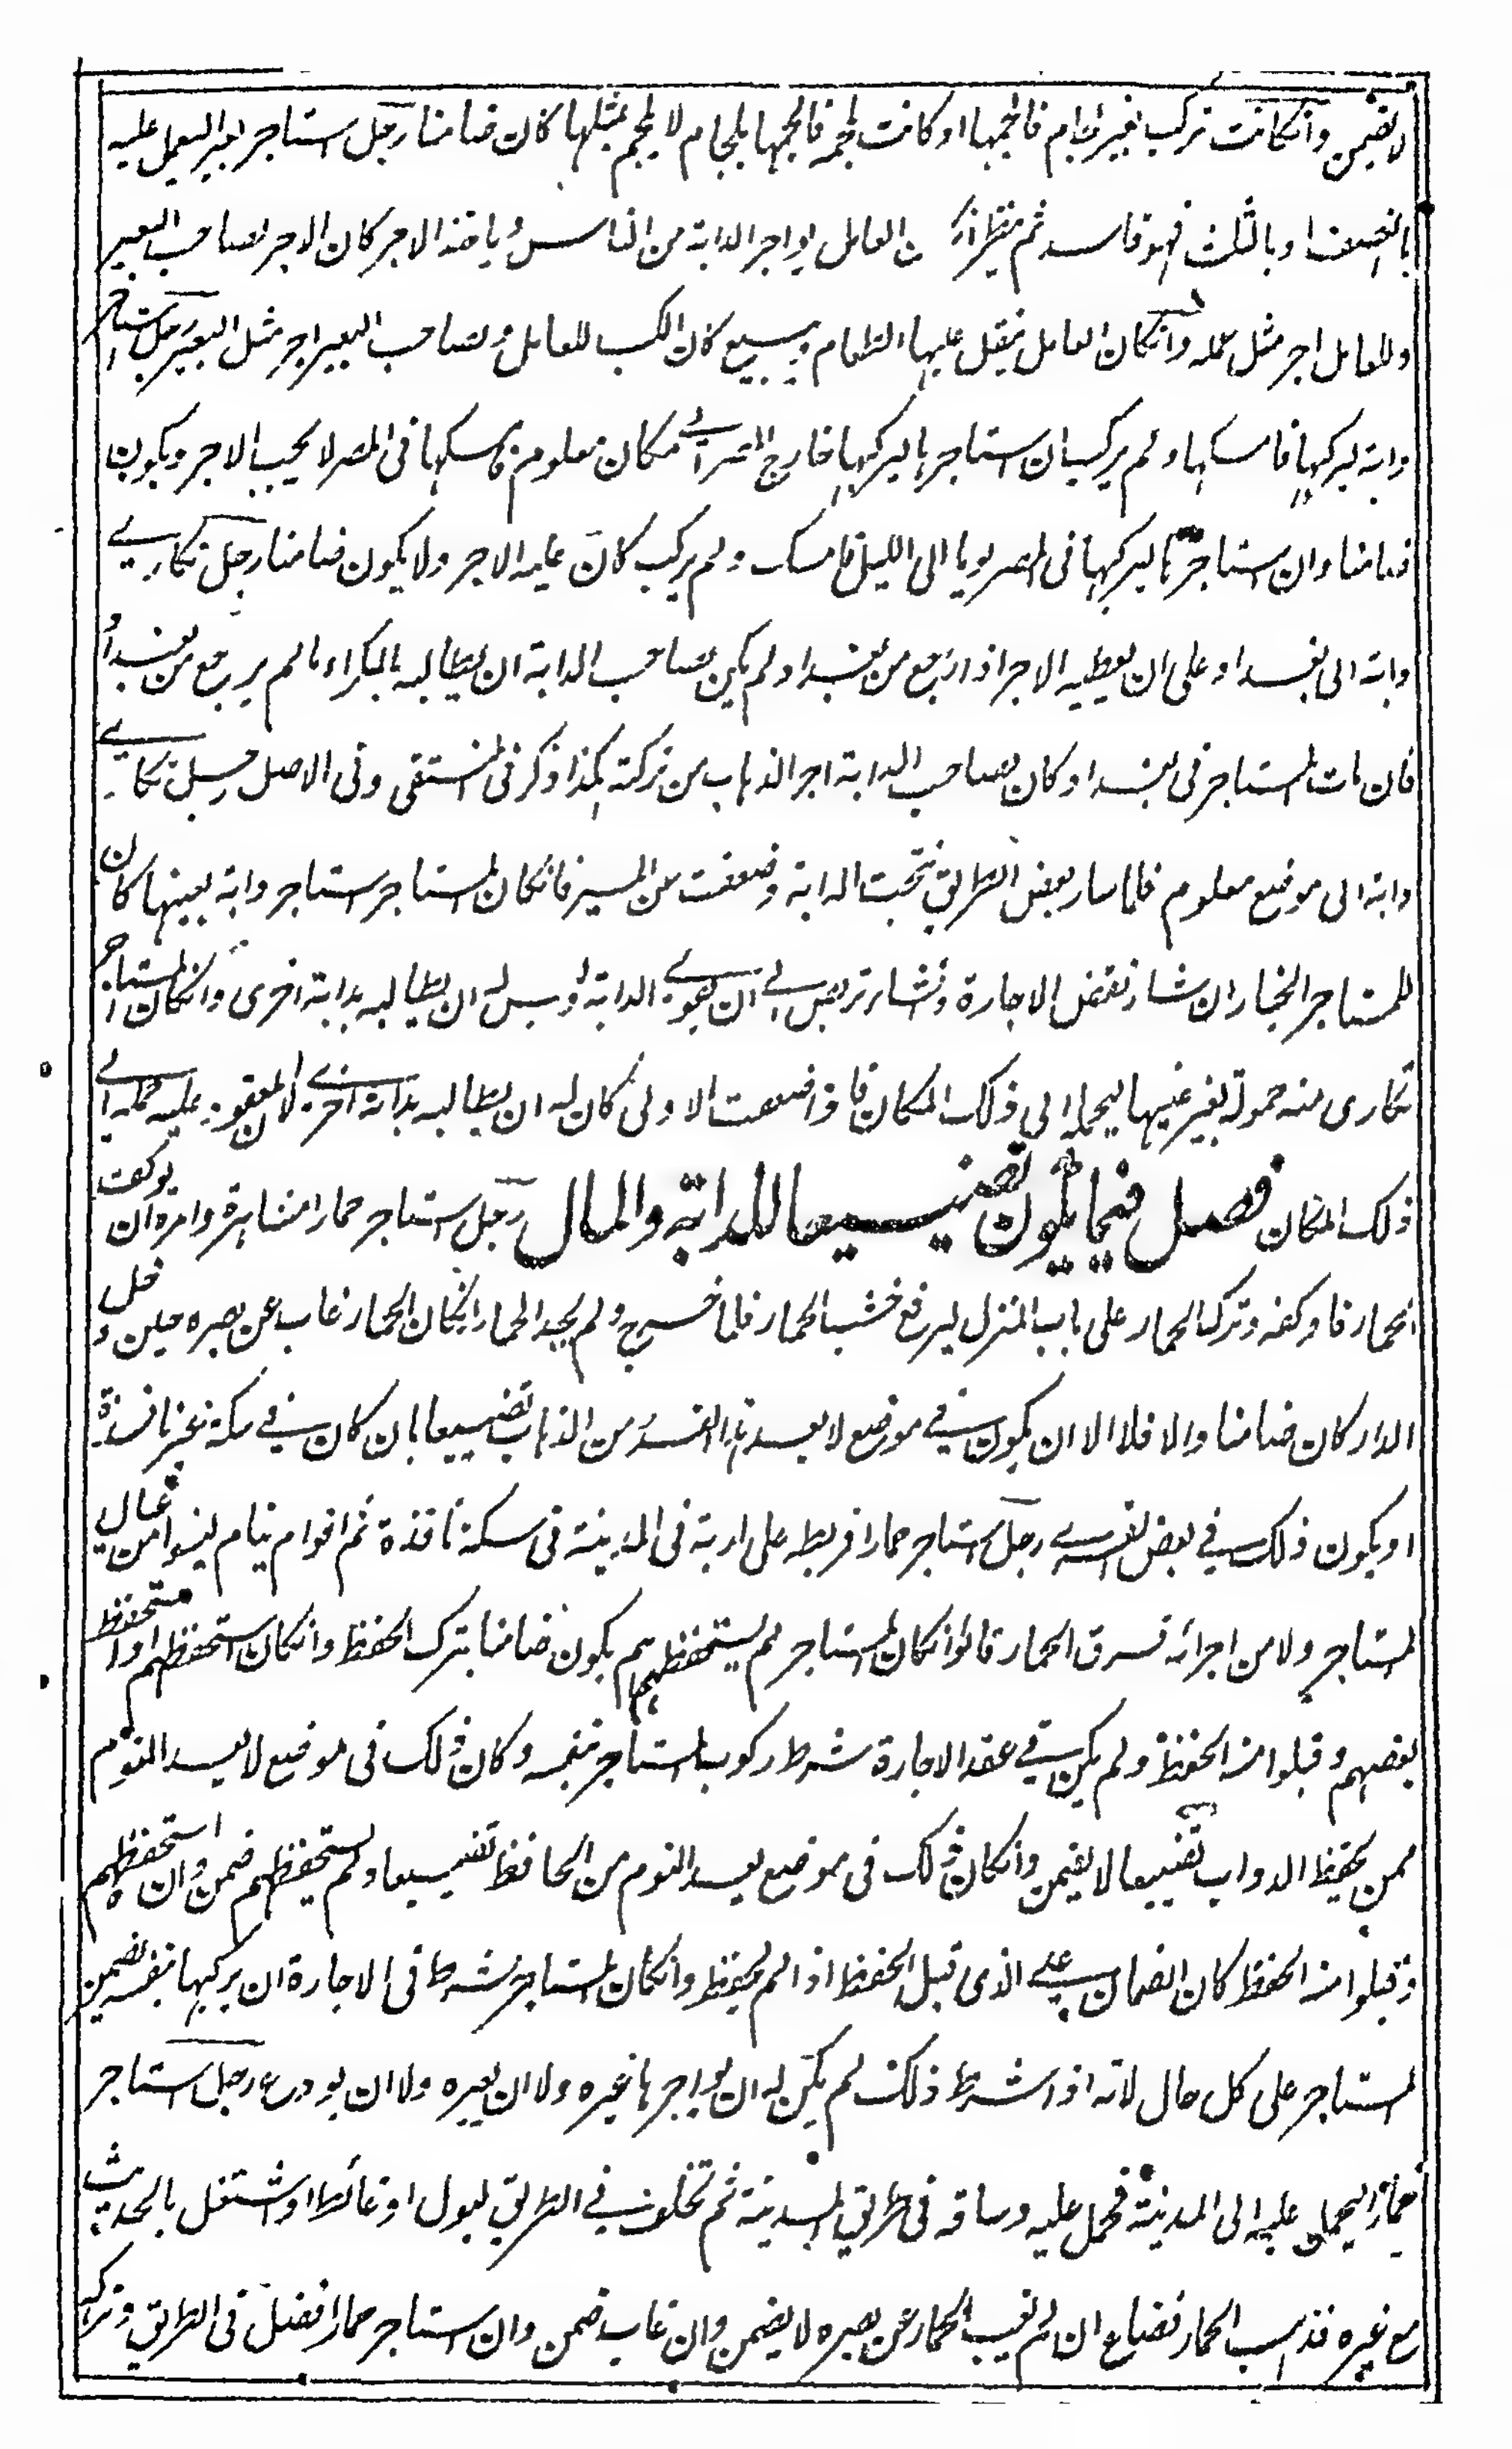 لا يضمن وانكانت تركب بغير لجام فالجمها او كانت لمجمة فالجمها بلجام لا يلجم بمثلها كان ضامنا رجل استاجر بعيرا ليعمل عليه
بالنصف او بالثلث فهو فاسد ثم ينظر ان كان العامل يواجر الدابة من الناس وياخذ الاجر كان الاجر لصاحب البعير
وللعامل اجر مثل عمله وانكان العامل ينقل عليها الطعام ويبيع كان الكسب للعامل ولصاحب البعير اجر مثل البعير رجل استاجر
دابة ليركبها فامسكها ولم يركب ان استاجرها ليركبها خارج المصر الى مكان معلوم فامسكها في المصر لا يجب الاجر ويكون
ضامنا وان استاجرها ليركبها في المصر يوما الى الليل فامسك ولم يركب كان عليه الاجر ولا يكون ضامنا رجل تكارى
دابة الى بغداد على ان يعطيه الاجر اذا رجع من بغداد لم يكن لصاحب الدابة ان يطالبه بالكراء ما لم يرجع من بغداد
فان مات المستاجر في بغداد كان لصاحب الدابة اجر الذهاب من تركته هكذا ذكر في المنتقى وفي الاصل رجل تكارى
دابة الى موضع معلوم فلما سار بعض الطريق نتجت الدابة وضعفت عن المسير فانكان المستاجر استاجر دابة بعينها كان
للمستاجر الخيار ان شاء نقض الاجارة وان شاء تربص الى ان تقوى الدابة وليس له ان يطالبه بدابة اخرى وانكان المستاجر
تكارى منه حمولة بغير عينها ليحمله الى ذلك المكان فاذا ضعفت الاولى كان له ان يطالبه بدابة اخرى لان المعقود عليه حمله الى
ذلك المكان فصل فيما يكون تضييعا للدابة والمال رجل استاجر حمارا مشاهرة وامره ان يوكف
الحمار فاوكفه وترك الحمار على باب المنزل ليرفع خشب الحمار فلما خرج ولم يجد الحمار انكان الحمار غاب عن بصره حين دخل
الدار كان ضامنا والا فلا الا ان يكون في موضع لا يعد هذا القدر من الذهاب تضييعا بان كان في سكة غير نافذة
او يكون ذلك في بعض القرى رجل استاجر حمارا فربطه على اربة في المدينة في سكة نافذة ثم اقوام نيام ليسوا من عيال
المستاجر ولا من اجرائه فسرق الحمار قالوا انكان المستاجر لم يستحفظهم يكون ضامنا بترك الحفظ وانكان استحفظهم او استحفظ
بعضهم وقبلوا منه الحفظ ولم يكن في عقد الاجارة شرط ركوب المستاجر بنفسه وكان ذلك في موضع لا يعد النوم
ممن يحفظ الدواب تضييعا لا يضمن وانكان ذلك في موضع يعد النوم من الحافظ تضييعا ولم يستحفظهم ضمن وان استحفظهم
وقبلوا منه الحفظ كان الضمان على الذي قبل الحفظ اذا لم يحفظ وانكان المستاجر شرط في الاجارة ان يركبها بنفسه يضمن
المستاجر على كل حال لانه اذا شرط ذلك لم يكن له ان يواجرها غيره ولا ان يعيره ولا ان يودع رجل استاجر
حمارا ليحمل عليه الى المدينة فحمل عليه وساقه في طريق المدينة ثم تخلف في الطريق لبول او غائط او اشتغل بالحديث
مع غيره فذهب الحمار فضاع ان لم يغب الحمار عن بصره لا يضمن وان غاب ضمن وان استاجر حمارا فضل في الطريق وتركه